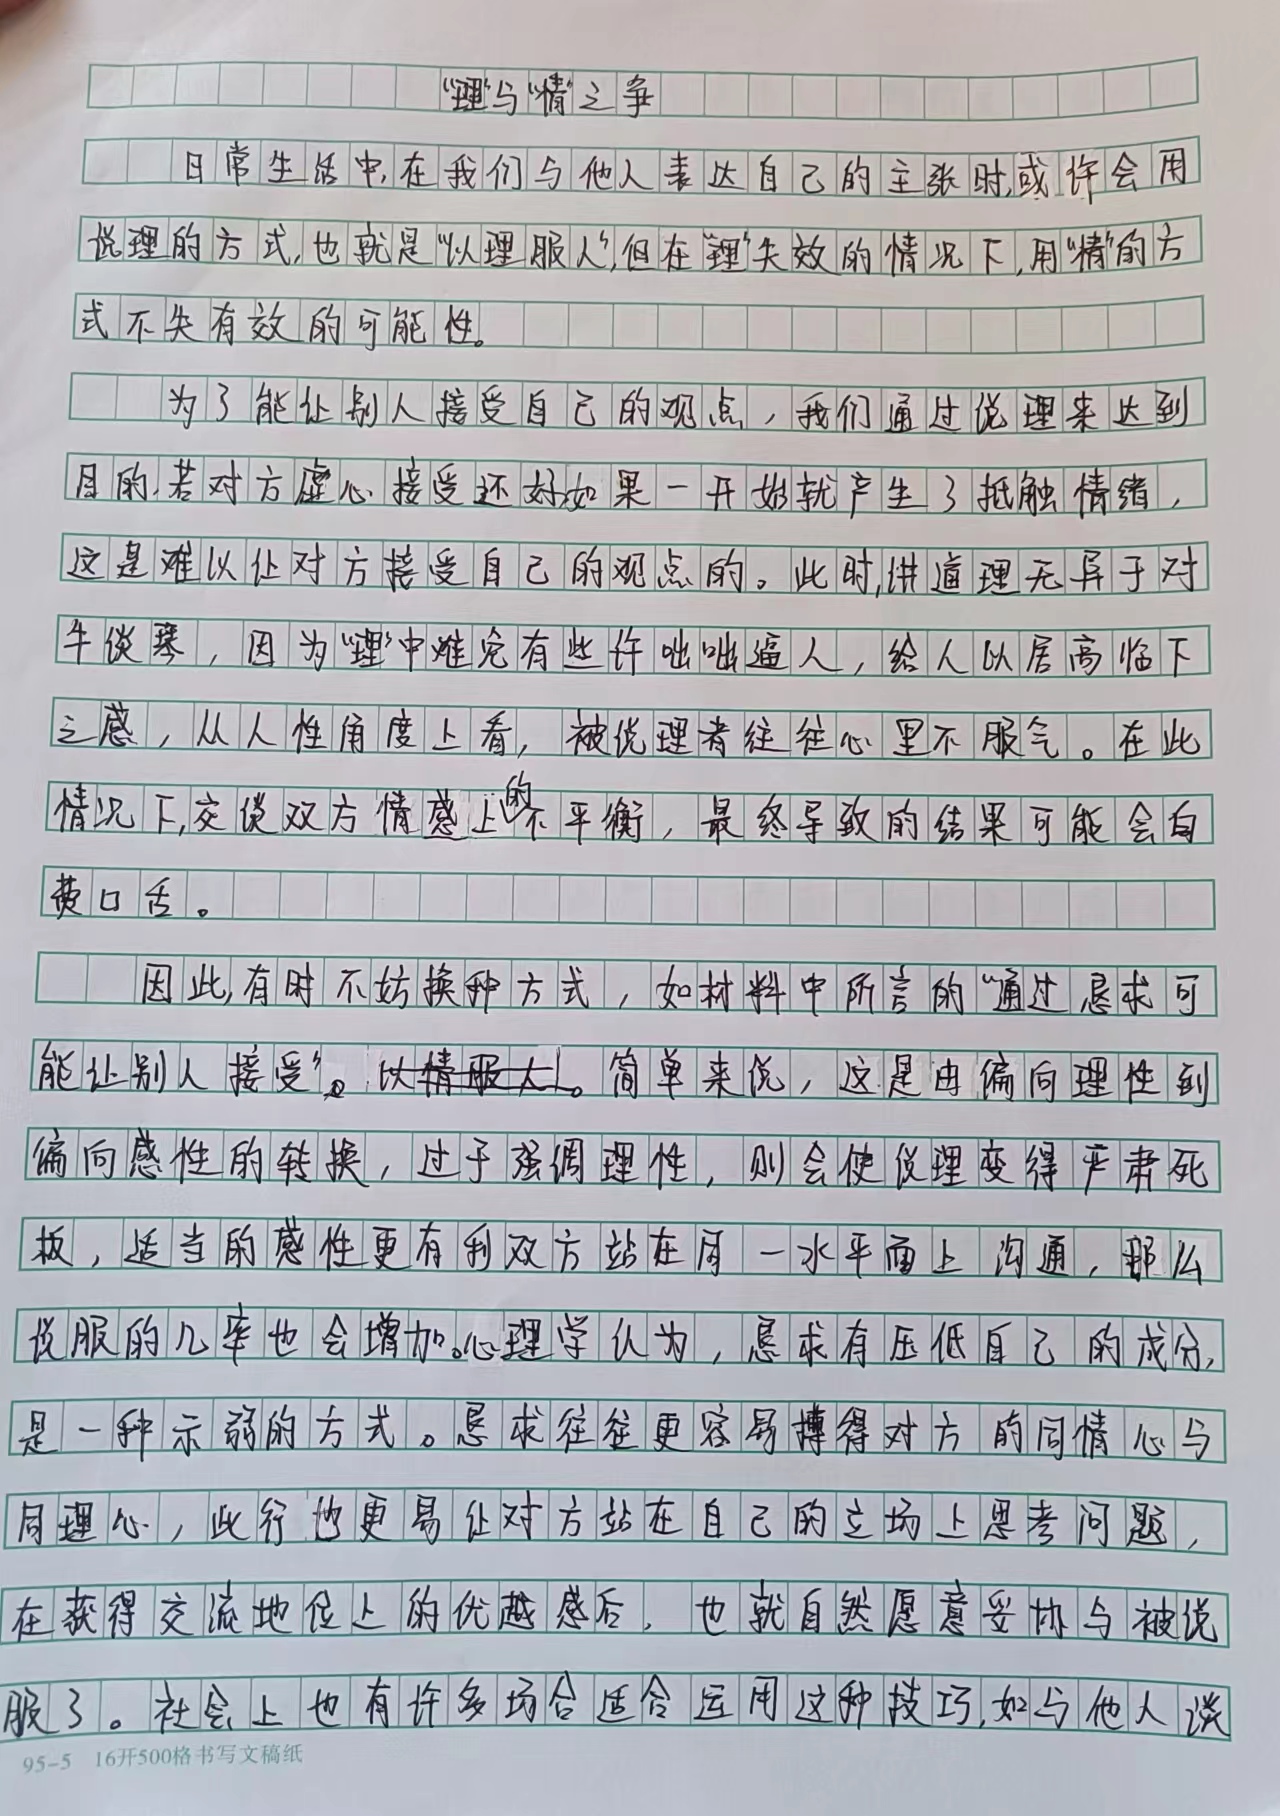 “理”与“情”之争
日常生活中,在我们与他人表达自己的主张时,或许会用
说理的方式,也就是“以理服人”,但在“理”失效的情况下,用“情”的方
式不失有效的可能性。
为了能让别人接受自己的观点,我们通过说理来达到
目的,若对方虚心接受还好,如果一开始就产生了抵触情绪,
这是难以让对方接受自己的观点的。此时,讲道理无异于对
牛谈琴,因为“理”中难免有些许咄咄逼人,给人以居高临下
之感,从人性角度上看,被说理者往往心里不服气。在此
情况下,交谈双方情感上的不平衡,最终导致的结果可能会白
费口舌。
因此,有时不妨换种方式,如材料中所言的“通过恳求可
能让别人接受”。以情服人。简单来说,这是由偏向理性到
偏向感性的转换,过于强调理性,则会使说理变得严肃死
板,适当的感性更有利双方站在同一水平面上沟通,那么
说服的几率也会增加。心理学认为,恳求有压低自己的成分,
是一种示弱的方式。恳求往往更容易搏得对方的同情心与
同理心,此行也更易让对方站在自己的立场上思考问题,
在获得交流地位上的优越感后,也就自然愿意妥协与被说
服了。社会上也有许多场合适合运用这种技巧,如与他人谈
95-5 16开500格书写文稿纸